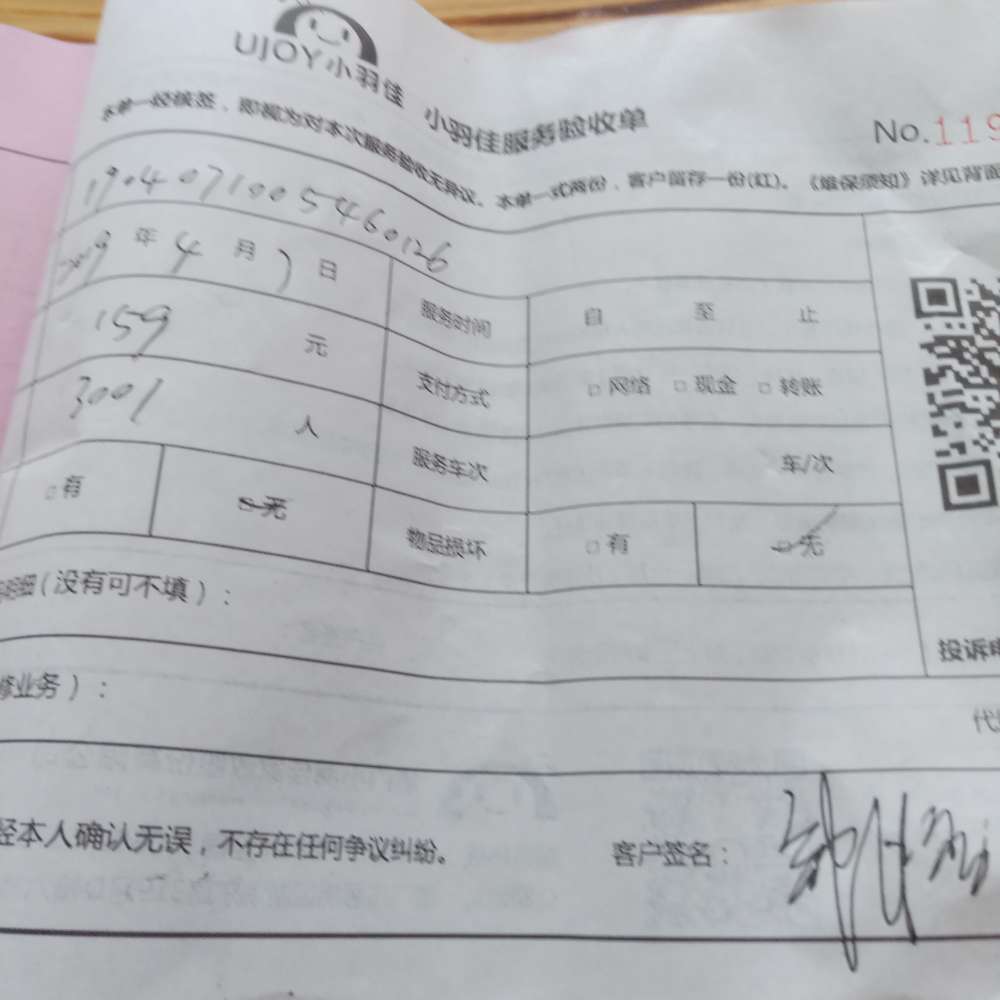 UJOY小羽佳 小羽佳服务验收单
No.119
本单一经核签，即视为对本次服务验收无异议。本单一式两份，客户留存一份(红)。《维保须知》详见背面
190407100546 0126
2019 年 4 月 7 日 服务时间 自 至 止
159 元 支付方式 □ 网络 □ 现金 □ 转账
3001 人 服务车次 车/次
□ 有 □ 无 物品损坏 □ 有 □ 无
明细(没有可不填)：
投诉电
修业务)：
代
经本人确认无误，不存在任何争议纠纷。 客户签名：